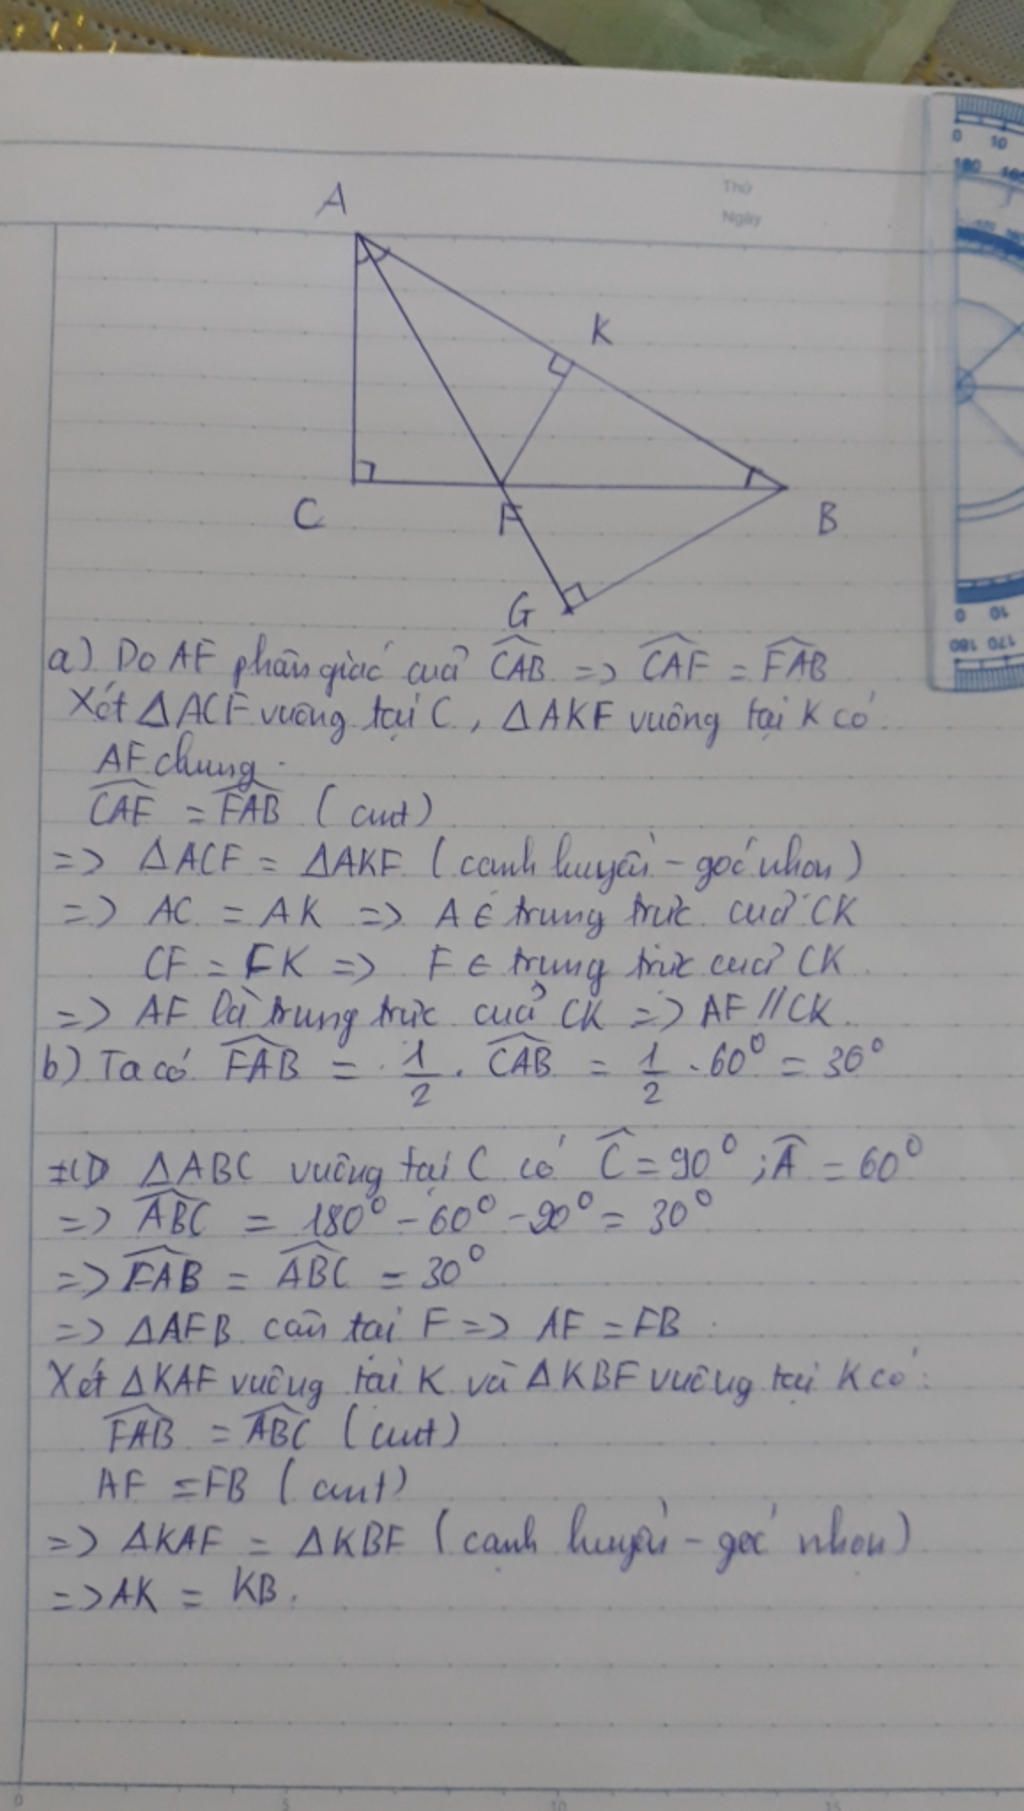 Thứ
Ngày
A
K
C
F
B
G
0 10
180
0 10
180 170
a) Do AF phân giác của CAB => CAF = FAB
Xét ΔACF vuông tại C, ΔAKF vuông tại K có
AF chung.
CAF = FAB (cmt)
=> ΔACF = ΔAKF (cạnh huyền - góc nhọn)
=> AC = AK => A ∈ trung trực của CK
CF = FK => F ∈ trung trực của CK
=> AF là trung trực của CK => AF // CK.
b) Ta có FAB = 1/2 . CAB = 1/2 . 60° = 30°
ΔABC vuông tại C có C = 90° ; A = 60°
=> ABC = 180° - 60° - 90° = 30°
=> FAB = ABC = 30°
=> ΔAFB cân tại F => AF = FB
Xét ΔKAF vuông tại K và ΔKBF vuông tại K có:
FAB = ABC (cmt)
AF = FB (cmt)
=> ΔKAF = ΔKBF (cạnh huyền - góc nhọn)
=> AK = KB.
0 5 10 15